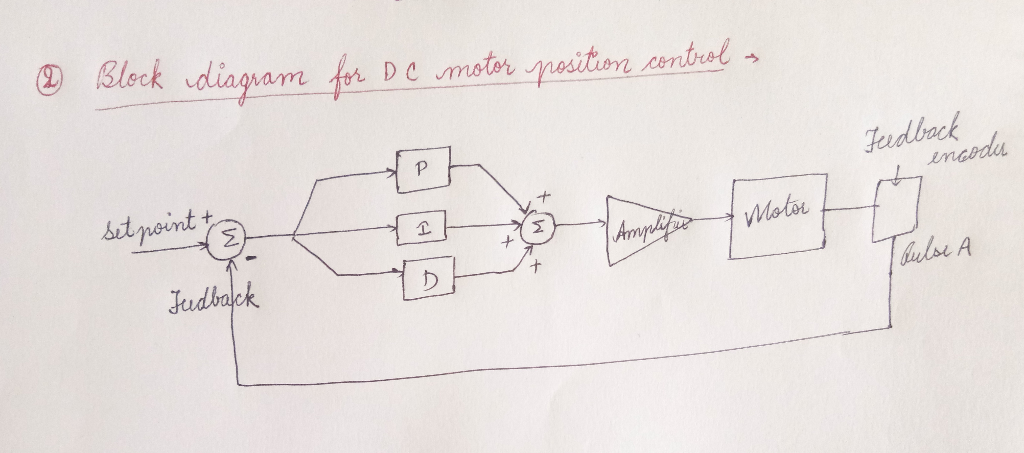 ② Block diagram for DC motor position control →
Feedback
encoder
P
set point +
Σ
-
I
+
+
+
Σ
Amplifier
Motor
D
Pulse A
Feedback